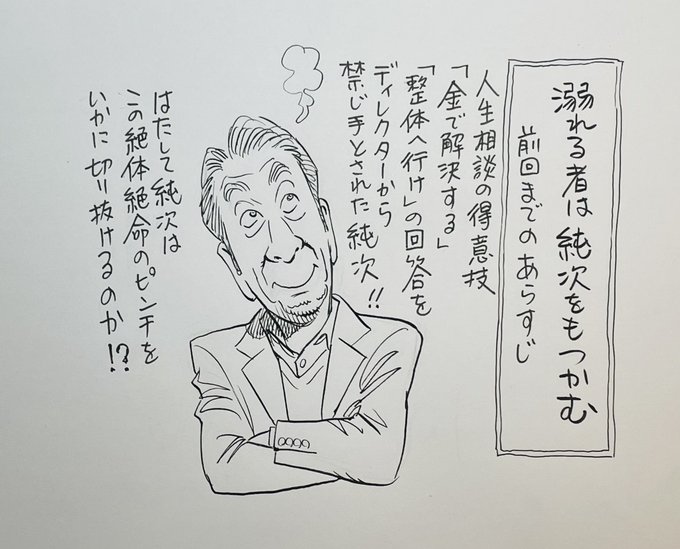 溺れる者は純次をもつかむ
前回までのあらすじ
人生相談の得意技
「金で解決する」
「整体へ行け」の回答を
ディレクターから
禁じ手とされた純次!!
はたして純次は
この絶体絶命のピンチを
いかに切り抜けるのか!?